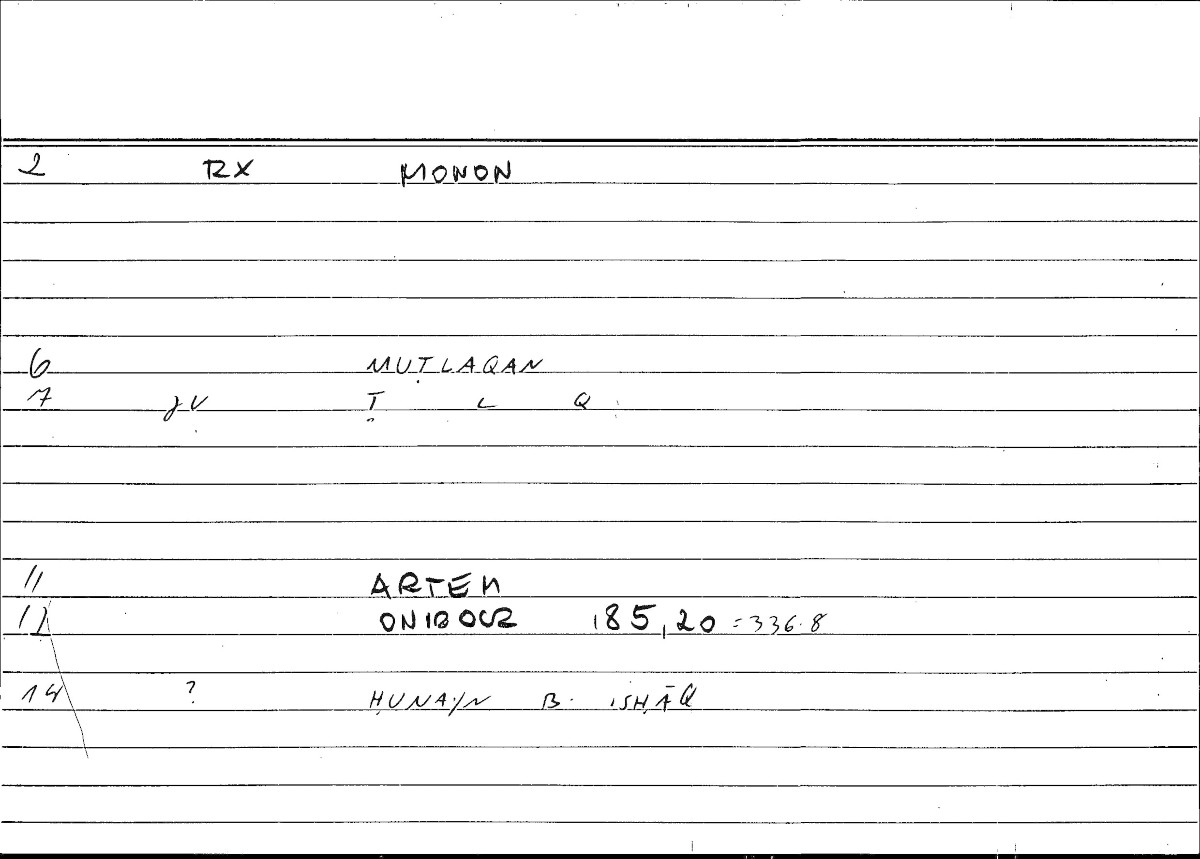 2 RX MONON
6 MUṬLAQAN
7 JV Ṭ L Q
11 ARTEM
12 ONIROCR 185,20 = 336.8
14 ? ḤUNAYN B. ISḤĀQ